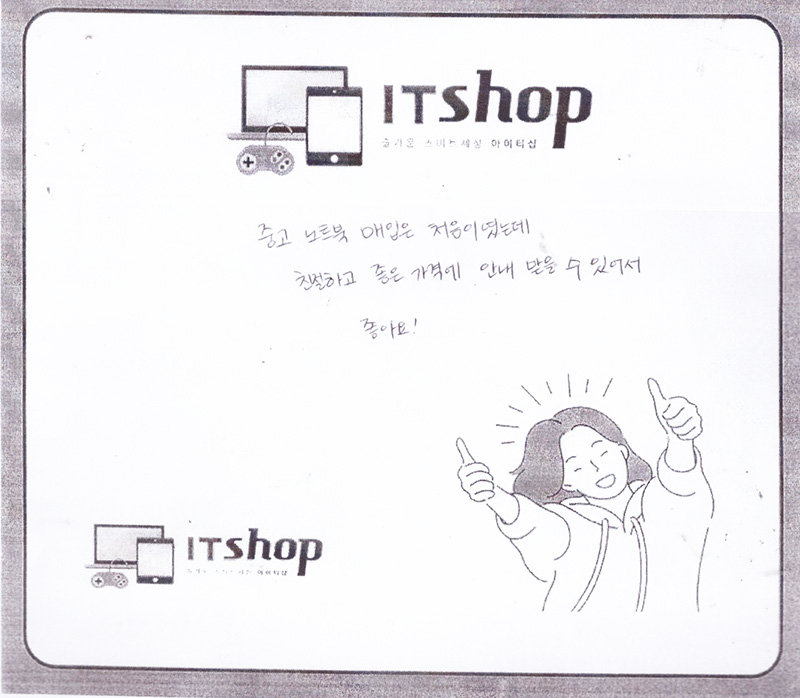 ITshop
즐거운 스마트세상 아이티샵
중고 노트북 매입은 처음이였는데
친절하고 좋은 가격에 안내 받을 수 있어서
좋아요!
ITshop
아이티샵